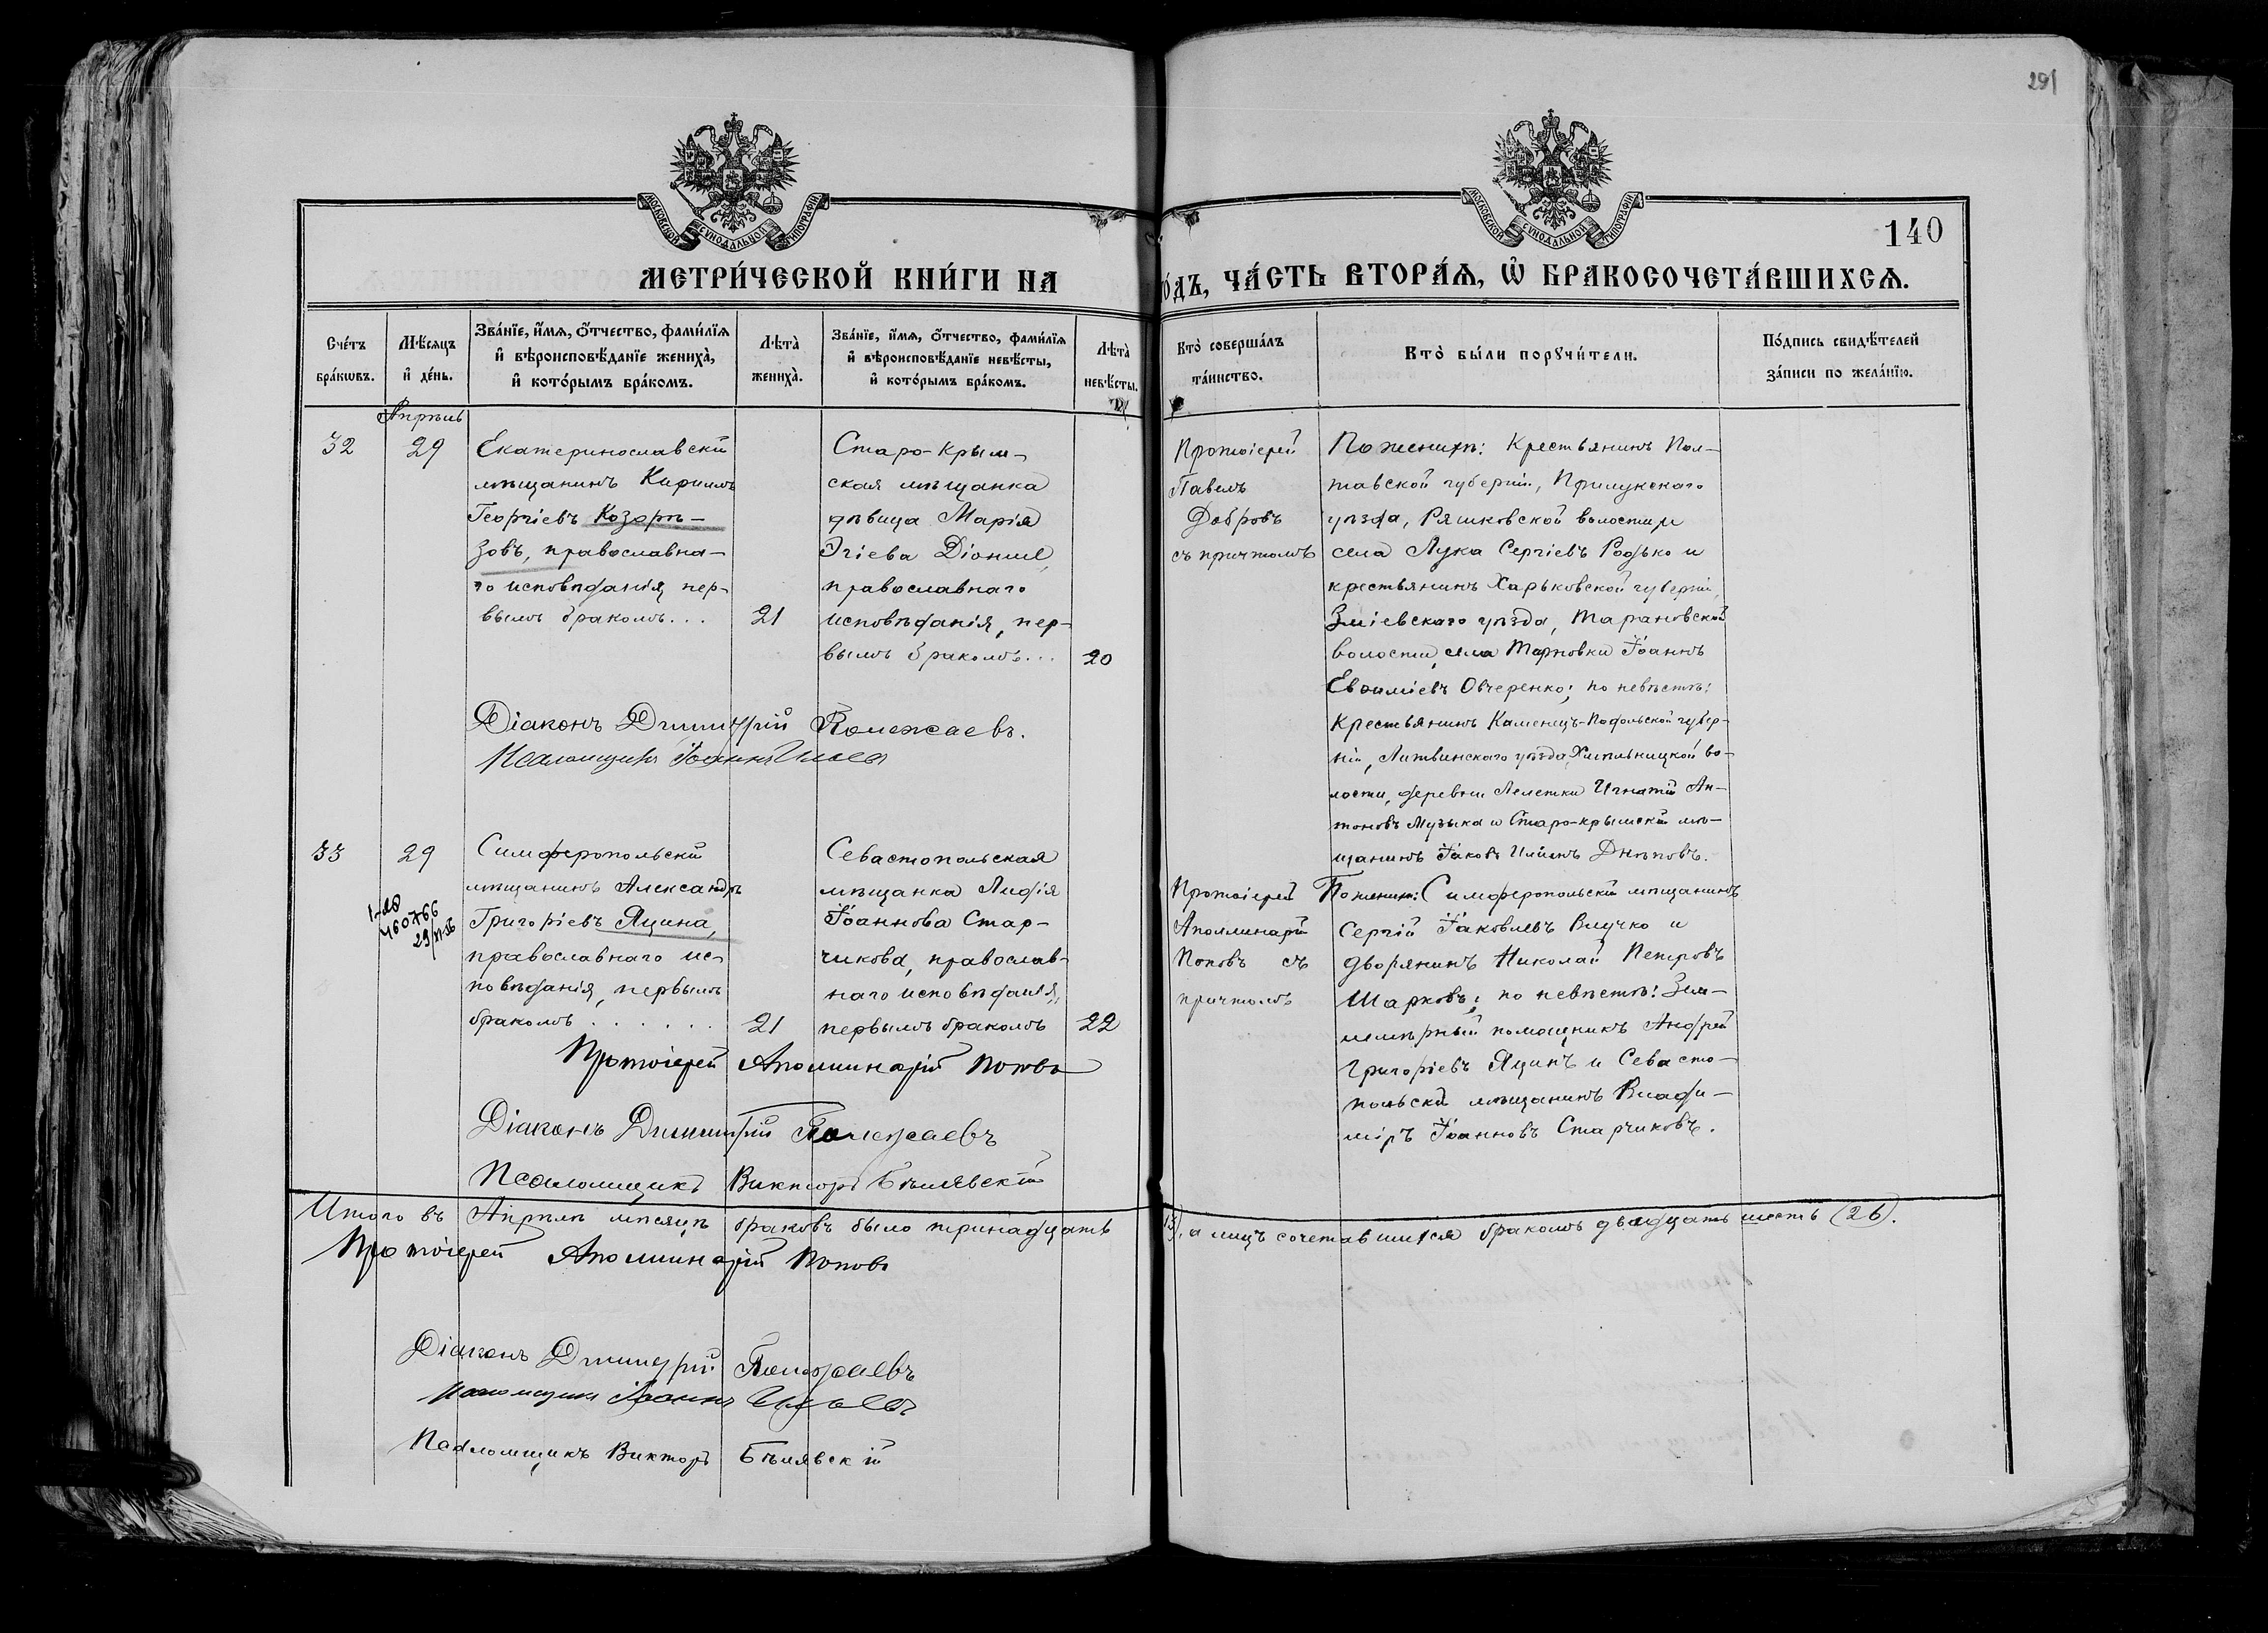 291
МОСКОВСКОЙ СУНОДАЛЬНОЙ ТИПОГРАФІИ
МОСКОВСКОЙ СУНОДАЛЬНОЙ ТИПОГРАФІИ
140
МЕТРИ́ЧЕСКОЙ КНИ́ГИ НА
О́ДЪ, ЧА́СТЬ ВТОРА́Ѧ, Ѡ҆ БРАКОСОЧЕТА́ВШИХСѦ.
Сче́тъ
бра́кωвъ.
Мѣ́сѧцъ
и҆ де́нь.
Зва́нїе, и҆́мѧ, ѻ҆́тчество, фами́лїѧ
и҆ вѣроисповѣ́данїе жениха̀,
и҆ кото́рымъ бра́комъ.
Лѣта̀
жениха̀.
Зва́нїе, и҆́мѧ, ѻ҆́тчество, фами́лїѧ
и҆ вѣроисповѣ́данїе невѣ́сты,
и҆ кото́рымъ бра́комъ.
Лѣта̀
невѣ́сты.
Кто̀ соверша́лъ
та́инство.
Кто̀ бы́ли порꙋчи́тели.
По́дпись свидѣ́телей
за́писи по жела́нїю.
Апрѣль
32
29
Екатеринославскій
мѣщанинъ Кириллъ
Георгіевъ Козорѣ-
зовъ, православна-
го исповѣданія, пер-
вымъ бракомъ...
21
Старо-Крым-
ская мѣщанка
дѣвица Марія
Ѳгіева Діонис,
православнаго
исповѣданія, пер-
вымъ бракомъ...
20
Протоіерей
Павелъ
Добровъ
съ причтомъ
По женихѣ: Крестьянинъ Пол-
тавской губерніи, Прилукскаго
уѣзда, Ряшковской волости и
села Лука Сергіевъ Родько и
крестьянинъ Харьковской губерніи,
Зміевскаго уѣзда, Тарановской
волости, села Тарновки Іоаннъ
Евѳиміевъ Овчеренко; по невѣстѣ:
Крестьянинъ Каменецъ-Подольской губер-
ніи, Литвинскаго уѣзда, Хмѣльницкой во-
лости, деревни Лелетки Игнатій Ан-
тоновъ Музыка и Старо-крымскій мѣ-
щанинъ Іаковъ Ильинъ Днѣповъ.
Діаконъ Димитрій Полежаевъ.
Псаломщикъ Іоаннъ Ильевъ
33
29
Симферопольскій
мѣщанинъ Александръ
Григоріевъ Яцина,
православнаго ис-
повѣданія, первымъ
бракомъ . . . . . .
21
Севастопольская
мѣщанка Лидія
Іоаннова Стар-
чикова, православ-
наго исповѣданія,
первымъ бракомъ
22
Протоіерей
Аполлинарій
Поповъ съ
причтомъ
По женихѣ: Симферопольскій мѣщанинъ
Сергій Іаковлевъ Влучко и
дворянинъ Николай Петровъ
Шарковъ; по невѣстѣ: Зем-
лемѣрный помощникъ Андрей
Григоріевъ Яцинъ и Севасто-
польскій мѣщанинъ Влади-
міръ Іоанновъ Старчиковъ.
Протоіерей Аполлинарій Поповъ
Діаконъ Димитрій Полежаевъ
Псаломщикъ Викторъ Бѣлявскій
Итого въ Апрѣлѣ мѣсяцѣ браковъ было тринадцать
13), а лицъ сочетавшихся бракомъ двадцать шесть (26).
Протоіерей Аполлинарій Поповъ
Діаконъ Димитрій Полежаевъ
Псаломщикъ Іоаннъ Ильевъ
Псаломщикъ Викторъ Бѣлявскій